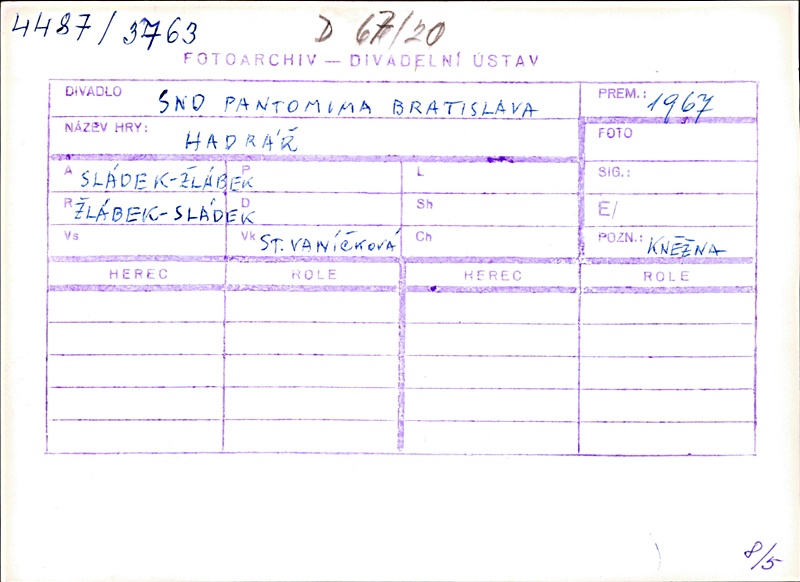 4487/3763
D 67/20
FOTOARCHIV — DIVADELNÍ ÚSTAV
DIVADLO SND PANTOMIMA BRATISLAVA PREM.: 1967
NÁZEV HRY: HADRÁŘ FOTO
A SLÁDEK-ŽLÁBEK P L SIG.:
R ŽLÁBEK-SLÁDEK D Sh E/
Vs Vk ST. VANÍČKOVÁ Ch POZN.: KNĚŽNA
HEREC ROLE HEREC ROLE
8/5